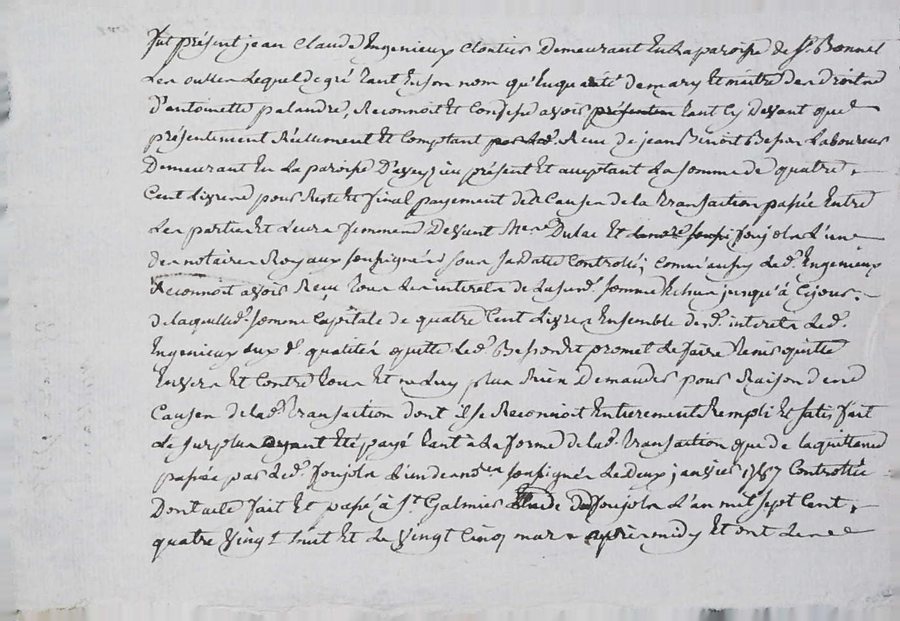 fut présent jean Claude Ingenieux Cloutier Demeurant En La paroisse de St. Bonnet
Les oulles Lequel de gré tant En son nom qu'En qualité de mary Et maitre des droits
D'antoinette palandre, Reconnoit Et Confesse avoir tant Cy Devant que
présentement Réellement Et Comptant Reçu de jean Benoit Besson Laboureur
Demeurant En La paroisse D'aveyzieu présent Et acceptant La somme de quatre
Cent Livres pour Reste Et final payement des Causes de La transaction passée Entre
Les parties Et Leurs femmes Devant Me. Dulac Et foujols L'un
des notaires Royaux soussignés sous sa datte Controllé; comm'aussy Led. Ingenieux
Reconnoit avoir Reçu tous Les interets de Lasusd. somme Echus jusqu'à Cejour.
de laquelle d. somme Capitale de quatre Cent Livres Ensemble desd. interets Led.
Ingenieux aux d. qualités quitte Led. Besson Et promet Le faire tenir quitte
Envers Et Contre tous Et ne Luy plus Rien Demander pour Raison des
Causes de lad. transaction dont il se Reconnoit Entierement Rempli Et satisfait
Le surplus ayant Eté payé tant à La forme de lad. transaction que de la quittance
passée par Led. foujols L'un des no.res soussigné Le deux janvier 1787 Controllée
Dont acte fait Et passé à St. Galmier Etude de foujols L'an mil sept Cent
quatre Vingt huit Et Le Vingt Cinq mars après midy Et ont Les